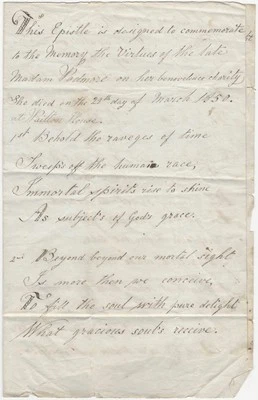 This Epistle is designed to commemorate
to the Memory the Virtues of the late
Madam on her benevolence charity
She died on the 28th day of March 1850.
at House.
1st Behold the raveges of time
Sweeps off the human race,
Immortal spirits rise to shine
As subjects of God's grace.
2nd Beyond beyond our mortal sight
Is more then we conceive,
To fill the soul with pure delight
What gracious souls receive.